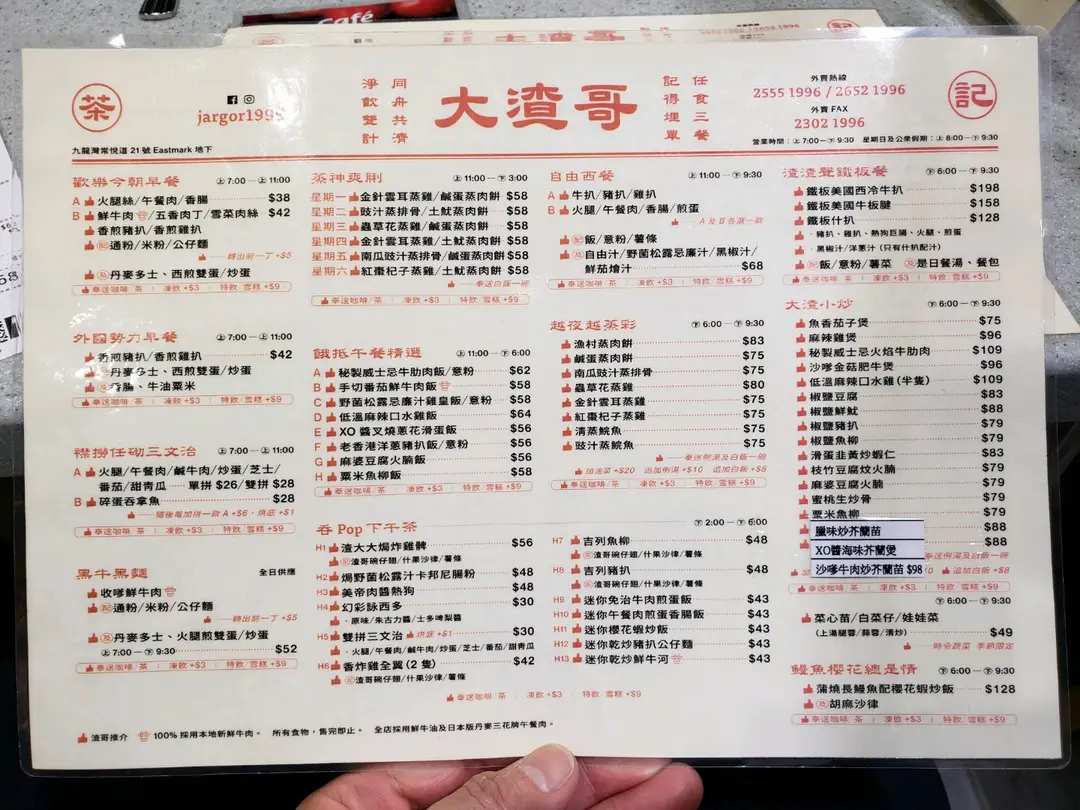 Café
茶
jargor1995
淨飲雙計
同舟共濟
大渣哥
記得埋單
任食三餐
外賣熱線
2555 1996 / 2652 1996
外賣 FAX
2302 1996
記
九龍灣常悅道 21 號 Eastmark 地下
營業時間：上 7:00─下 9:30 星期日及公眾假期：上 8:00─下 9:30
歡樂今朝早餐 上 7:00─上 11:00
A 火腿絲/午餐肉/香腸 $38
B 鮮牛肉/五香肉丁/雪菜肉絲 $42
香煎豬扒/香煎雞扒
配 通粉/米粉/公仔麵
轉出前一丁 +$5
及 丹麥多士、西煎雙蛋/炒蛋
奉送咖啡/茶 | 凍飲 +$3 | 特飲/雪糕 +$9
外國勢力早餐 上 7:00─上 11:00
香煎豬扒/香煎雞扒 $42
丹麥多士、西煎雙蛋/炒蛋
香腸、牛油粟米
奉送咖啡/茶 | 凍飲 +$3 | 特飲/雪糕 +$9
襟撈任砌三文治 上 7:00─上 11:00
A 火腿/午餐肉/鹹牛肉/炒蛋/芝士/
番茄/甜青瓜 單拼 $26/雙拼 $28
B 碎蛋吞拿魚 $28
隨後每加拼一款 A +$6，烘底 +$1
奉送咖啡/茶 | 凍飲 +$3 | 特飲/雪糕 +$9
黑牛黑麵 全日供應
收嗲鮮牛肉
配 通粉/米粉/公仔麵
轉出前一丁 +$5
及 丹麥多士、火腿煎雙蛋/炒蛋
上 7:00─下 9:30 $52
奉送咖啡/茶 | 凍飲 +$3 | 特飲/雪糕 +$9
蒸神爽脷 上 11:00─下 3:00
星期一 金針雲耳蒸雞/鹹蛋蒸肉餅 $58
星期二 豉汁蒸排骨/土魷蒸肉餅 $58
星期三 蟲草花蒸雞/鹹蛋蒸肉餅 $58
星期四 金針雲耳蒸雞/土魷蒸肉餅 $58
星期五 南瓜豉汁蒸排骨/鹹蛋蒸肉餅 $58
星期六 紅棗杞子蒸雞/土魷蒸肉餅 $58
奉送白飯一碗
奉送咖啡/茶 | 凍飲 +$3 | 特飲/雪糕 +$9
餓抵午餐精選 上 11:00─下 6:00
A 秘製威士忌牛肋肉飯/意粉 $62
B 手切番茄鮮牛肉飯 $58
C 野菌松露忌廉汁雞皇飯/意粉 $58
D 低溫麻辣口水雞飯 $64
E XO 醬叉燒蔥花滑蛋飯 $56
F 老香港洋蔥豬扒飯/意粉 $56
G 麻婆豆腐火腩飯 $56
H 粟米魚柳飯 $58
奉送咖啡/茶 | 凍飲 +$3 | 特飲/雪糕 +$9
吞 Pop 下午茶 下 2:00─下 6:00
H1 渣大大焗炸雞髀 $56
及 渣哥碗仔翅/什果沙律/薯條
H2 焗野菌松露汁卡邦尼腸粉 $48
H3 美帝肉醬熱狗 $48
H4 幻彩詠西多 $30
・原味/朱古力醬/士多啤梨醬
H5 雙拼三文治 烘底 +$1 $30
・火腿/午餐肉/鹹牛肉/炒蛋/芝士/番茄/甜青瓜
H6 香炸雞全翼 (2 隻) $42
及 渣哥碗仔翅/什果沙律/薯條
H7 吉列魚柳 $48
及 渣哥碗仔翅/什果沙律/薯條
H8 吉列豬扒 $48
及 渣哥碗仔翅/什果沙律/薯條
H9 迷你免治牛肉煎蛋飯 $43
H10 迷你午餐肉煎蛋香腸飯 $43
H11 迷你櫻花蝦炒飯 $43
H12 迷你乾炒豬扒公仔麵 $43
H13 迷你乾炒鮮牛河 $43
奉送咖啡/茶 | 凍飲 +$3 | 特飲/雪糕 +$9
自由西餐 上 11:00─下 9:30
A 牛扒/豬扒/雞扒
B 火腿/午餐肉/香腸/煎蛋
A 及 B 各選一款
配 飯/意粉/薯條
及 自由汁/野菌松露忌廉汁/黑椒汁/
鮮茄燴汁 $68
奉送咖啡/茶 | 凍飲 +$3 | 特飲/雪糕 +$9
越夜越蒸彩 下 6:00─下 9:30
漁村蒸肉餅 $83
鹹蛋蒸肉餅 $75
南瓜豉汁蒸排骨 $75
蟲草花蒸雞 $80
金針雲耳蒸雞 $75
紅棗杞子蒸雞 $75
清蒸鯇魚 $75
豉汁蒸鯇魚 $75
奉送例湯及白飯一碗
加油菜 +$20 追加例湯 +$10 追加白飯 +$8
奉送咖啡/茶 | 凍飲 +$3 | 特飲/雪糕 +$9
渣渣聲鐵板餐 下 6:00─下 9:30
鐵板美國西冷牛扒 $198
鐵板美國牛板腱 $158
鐵板什扒 $128
・豬扒、雞扒、熱狗巨腸、火腿、煎蛋
・黑椒汁/洋蔥汁 (只有什扒配汁)
配 飯/意粉/薯菜 及 是日餐湯、餐包
奉送咖啡/茶 | 凍飲 +$3 | 特飲/雪糕 +$9
大渣小炒 下 6:00─下 9:30
魚香茄子煲 $75
麻辣雞煲 $96
秘製威士忌火焰牛肋肉 $109
沙嗲金菇肥牛煲 $96
低溫麻辣口水雞 (半隻) $109
椒鹽豆腐 $83
椒鹽鮮魷 $88
椒鹽豬扒 $79
椒鹽魚柳 $79
滑蛋韭黃炒蝦仁 $83
枝竹豆腐炆火腩 $79
麻婆豆腐火腩 $79
蜜桃生炒骨 $79
粟米魚柳 $79
臘味炒芥蘭苗 $88
XO醬海味芥蘭煲 $88
沙嗲牛肉炒芥蘭苗 $98
奉送例湯及白飯一碗
追加白飯 +$8
奉送咖啡/茶 | 凍飲 +$3 | 特飲/雪糕 +$9
下 6:00─下 9:30
菜心苗/白菜仔/娃娃菜
(上湯腿蓉/蒜蓉/清炒) $49
時令蔬菜 季節限定
鰻魚櫻花總是情 下 6:00─下 9:30
蒲燒長鰻魚配櫻花蝦炒飯 $128
及 胡麻沙律
奉送咖啡/茶 | 凍飲 +$3 | 特飲/雪糕 +$9
渣哥推介 100% 採用本地新鮮牛肉。 所有食物，售完即止。 全店採用鮮牛油及日本版丹麥三花牌午餐肉。